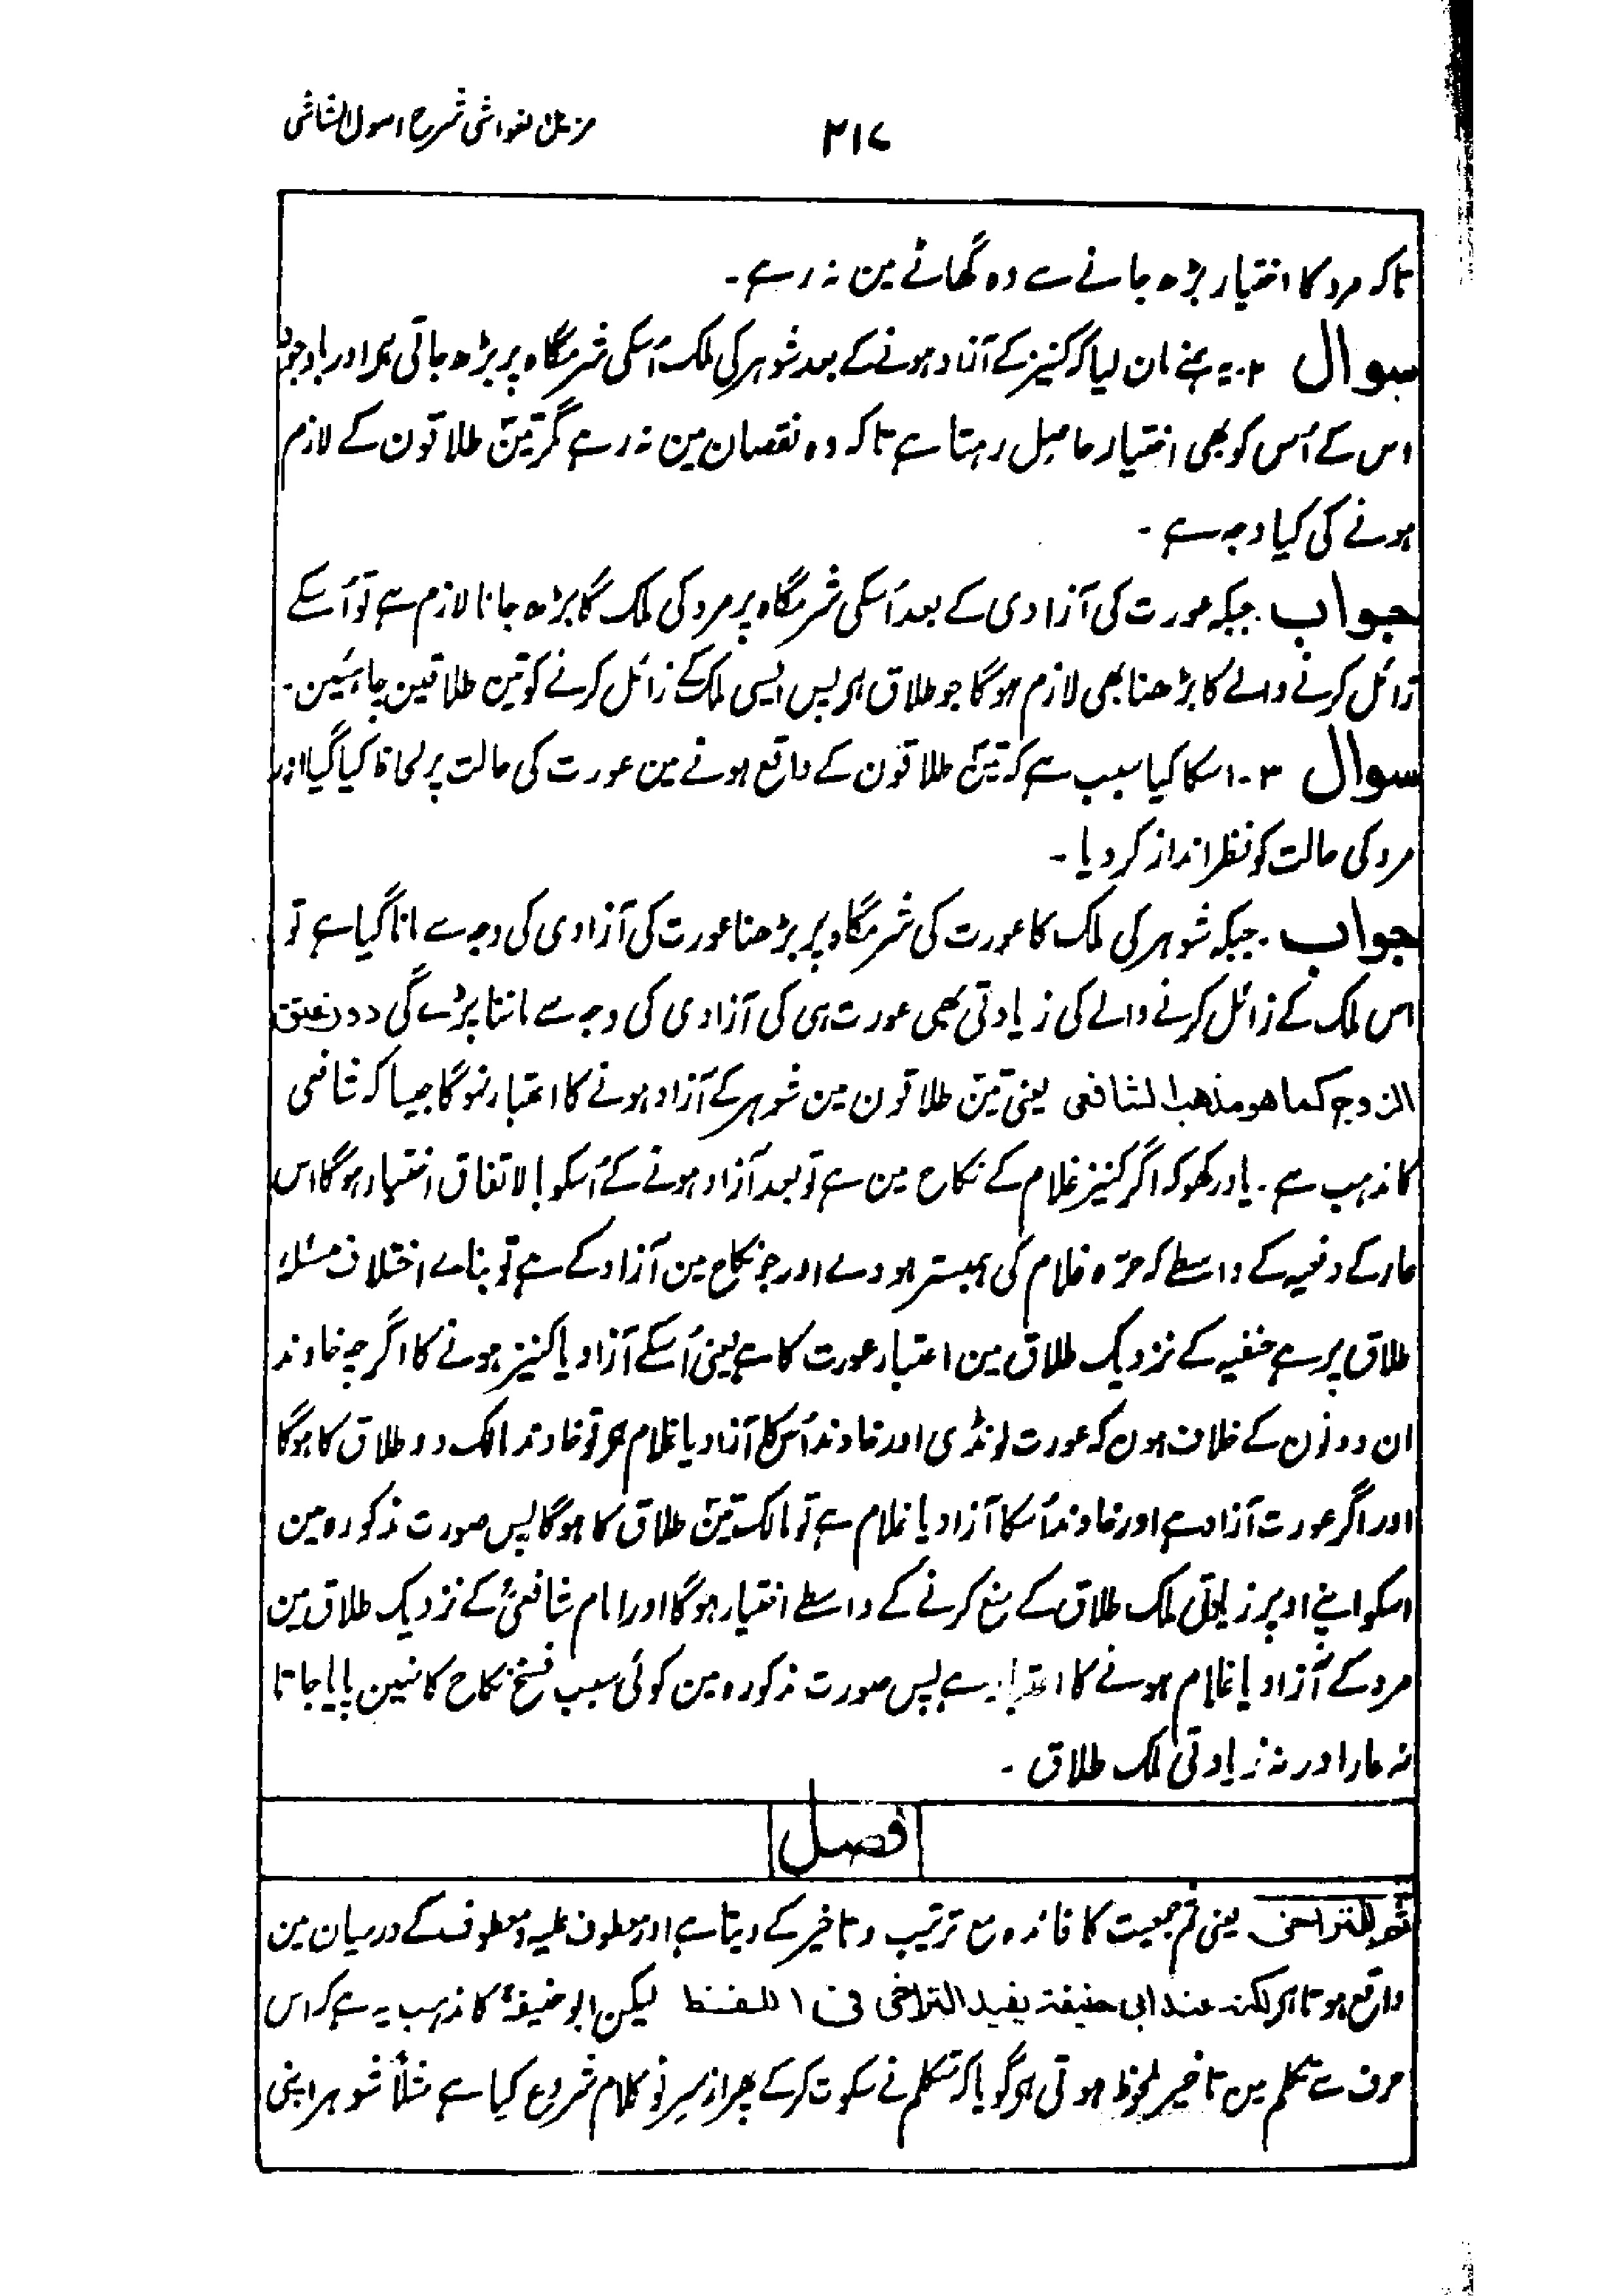 مزیل الغواشی شرح اصول الشاشی
۲۱۷
تاکہ مرد کا اختیار بڑھ جانے سے وہ گھاٹے مین نہ رہے۔
سوال ۲۔ یہ ہمنے مان لیا کہ کنیز کے آزاد ہونے کے بعد شوہر کی ملک اُسکی شرمگاہ پر بڑھ جاتی ہی اور باوجود
اس کے اُس کو بھی اختیار حاصل رہتا ہے تاکہ وہ نقصان مین نہ رہے مگر تین طلاقون کے لازم
ہونے کی کیا وجہ ہے۔
جواب۔ جبکہ عورت کی آزادی کے بعد اُسکی شرمگاہ پر مرد کی ملک کا بڑھ جانا لازم ہے تو اُسکے
زائل کرنے والے کا بڑھنا بھی لازم ہوگا جو طلاق ہی پس ایسی ملک کے زائل کرنے کو تین طلاقین چاہئین۔
سوال ۳۔ اسکا کیا سبب ہے کہ تین طلاقون کے واقع ہونے مین عورت کی حالت پر لحاظ کیا گیا اور
مرد کی حالت کو نظر انداز کر دیا۔
جواب۔ جبکہ شوہر کی ملک کا عورت کی شرمگاہ پر بڑھنا عورت کی آزادی کی وجہ سے مانا گیا ہے تو
اس ملک کے زائل کرنے والے کی زیادتی بھی عورت ہی کی آزادی کی وجہ سے ماننا پڑے گی دون عتق
الزوج کما ھو مذھب الشافعی یعنی تین طلاقون مین شوہر کے آزاد ہونے کا اعتبار نہوگا جیسا کہ شافعی
کا مذہب ہے۔ یاد رکھو کہ اگر کنیز غلام کے نکاح مین ہے تو بعد آزاد ہونے کے اُسکو بالاتفاق اختیار ہوگا اس
عار کے دفعیہ کے واسطے کہ حرّہ غلام کی ہمبستر ہووے اور جو نکاح مین آزاد کے ہے تو بناے اختلاف مسئلۂ
طلاق پر ہے حنفیہ کے نزدیک طلاق مین اعتبار عورت کا ہے یعنی اُسکے آزاد یا کنیز ہونے کا اگرچہ خاوند
ان دونون کے خلاف ہون کہ عورت لونڈی اور خاوند اُس کا آزاد یا غلام ہی تو خاوند مالک دو طلاق کا ہوگا
اور اگر عورت آزاد ہے اور خاوند اُسکا آزاد یا غلام ہے تو مالک تین طلاق کا ہوگا پس صورت مذکورہ مین
اسکو اپنے اوپر زیادتی ملک طلاق کے منع کرنے کے واسطے اختیار ہوگا اور امام شافعیؒ کے نزدیک طلاق مین
مرد کے آزاد یا غلام ہونے کا اعتبار ہے پس صورت مذکورہ مین کوئی سبب فسخ نکاح کا نہین پایا جاتا
نہ عار اور نہ زیادتی ملک طلاق۔
فصل
ثم للتراخی یعنی ثم جمعیت کا فائدہ مع ترتیب و تاخیر کے دیتا ہے اور معطوف علیہ و معطوف کے درمیان مین
واقع ہوتا ہی لکنہ عند ابی حنیفۃ یفید التراخی فی اللفظ لیکن ابو حنیفہؒ کا مذہب یہ ہے کہ اس
حرف سے تکلم مین تاخیر ملحوظ ہوتی ہی گویا کہ متکلم نے سکوت کر کے پھر از سرِ نو کلام شروع کیا ہے مثلاً شوہر اپنی